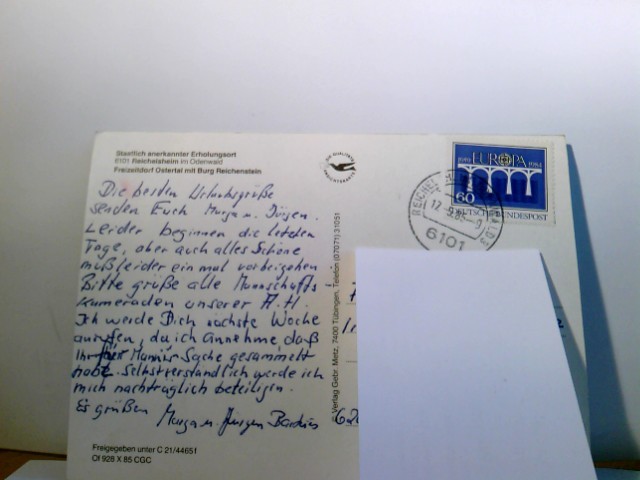 Staatlich anerkannter Erholungsort
6101 Reichelsheim im Odenwald
Freizeitdorf Ostertal mit Burg Reichenstein
Die besten Urlaubsgrüße
senden Euch Marga u. Jürgen.
Leider beginnen die letzten
Tage, aber auch alles Schöne
muß leider ein mal vorbeigehen
Bitte grüße alle Mannschafts
kameraden unserer A.H.
Ich werde Dich nächste Woche
anrufen, da ich annehme, daß
Ihr für Mannis Sache gesammelt
habt. Selbstverständlich werde ich
mich nachträglich beteiligen.
Es grüßen Marga u. Jürgen
Freigegeben unter C 21/44651
Of 928 X 85 CGC
© Verlag Gebr. Metz, 7400 Tübingen, Telefon (07071) 31051
1959 EUROPA 1984
60
DEUTSCHE BUNDESPOST
12.9.85
6101
62